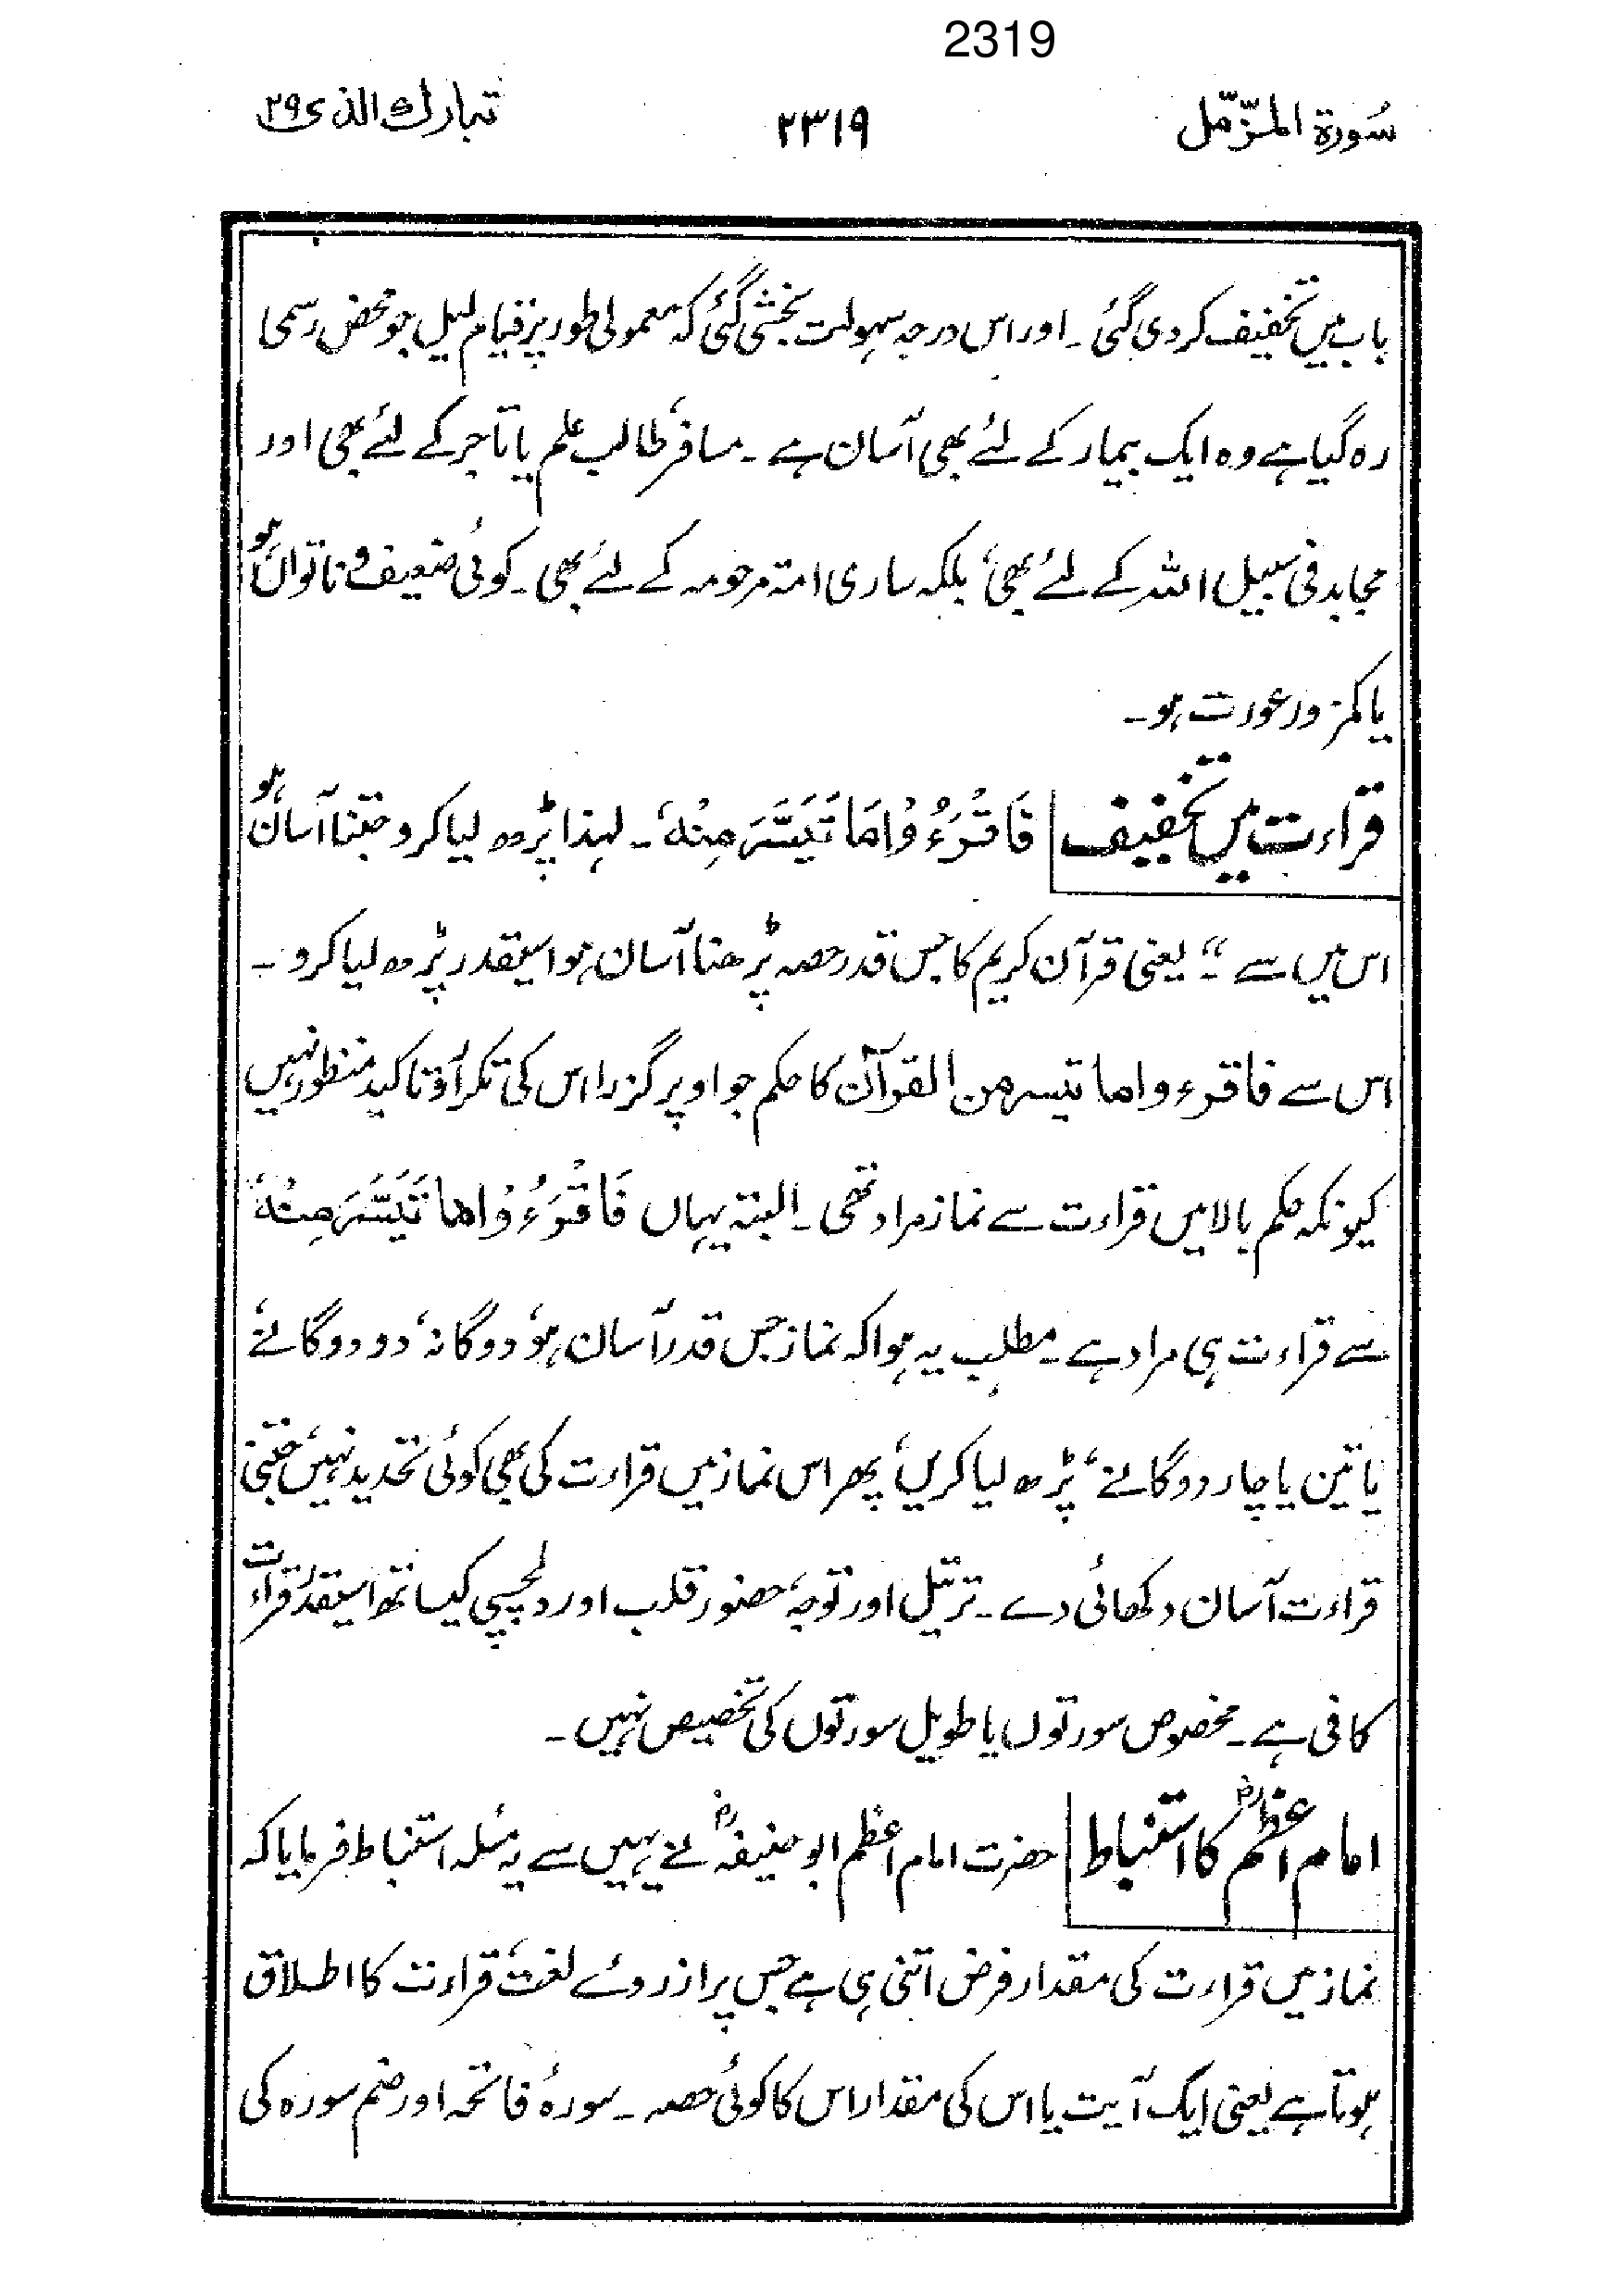 2319
سُورۃ المزّمّل ۲۳۱۹ تبارک الذی ۲۹
باب میں تخفیف کر دی گئی۔ اور اس درجہ سہولت بخشی گئی کہ معمولی طور پر قیام لیل جو محض رسمی
رہ گیا ہے وہ ایک بیمار کے لئے بھی آسان ہے۔ مسافر، طالب علم یا تاجر کے لئے بھی اور
مجاہد فی سبیل اللہ کے لئے بھی، بلکہ ساری امۃ مرحومہ کے لئے بھی۔ کوئی ضعیف و ناتواں ہو
یا کمزور عورت ہو۔
قراءت میں تخفیف فَاقْرَءُوْا مَا تَيَسَّرَ مِنْهُ۔ لہذا پڑھ لیا کرو جتنا آسان ہو
اس میں سے"۔ یعنی قرآن کریم کا جس قدر حصہ پڑھنا آسان ہو اسیقدر پڑھ لیا کرو۔
اس سے فاقرءوا ما تیسر من القرآن کا حکم جو اوپر گزرا اس کی تکرار و تاکید منظور نہیں
کیونکہ حکم بالا میں قراءت سے نماز مراد تھی۔ البتہ یہاں فَاقْرَءُوْا ما تَيَسَّرَ مِنْهُ
سے قراءت ہی مراد ہے۔ مطلب یہ ہوا کہ نماز جس قدر آسان ہو، دوگانہ، دو دوگانے،
یا تین یا چار دوگانے، پڑھ لیا کریں، پھر اس نماز میں قراءت کی بھی کوئی تحدید نہیں، جتنی
قراءت آسان دکھائی دے۔ ترتیل اور توجہ، حضور قلب اور دلچسپی کیساتھ اسیقدر قراءت
کافی ہے۔ مخصوص سورتوں یا طویل سورتوں کی تخصیص نہیں۔
امام اعظمؒ کا استنباط حضرت امام اعظم ابو حنیفہؒ نے یہیں سے یہ مسٔلہ استنباط فرمایا کہ
نماز میں قراءت کی مقدار فرض اتنی ہی ہے جس پر از روئے لغت، قراءت کا اطلاق
ہوتا ہے یعنی ایک آیت یا اس کی مقدار اس کا کوئی حصہ۔ سورۂ فاتحہ اور ضم سورہ کی